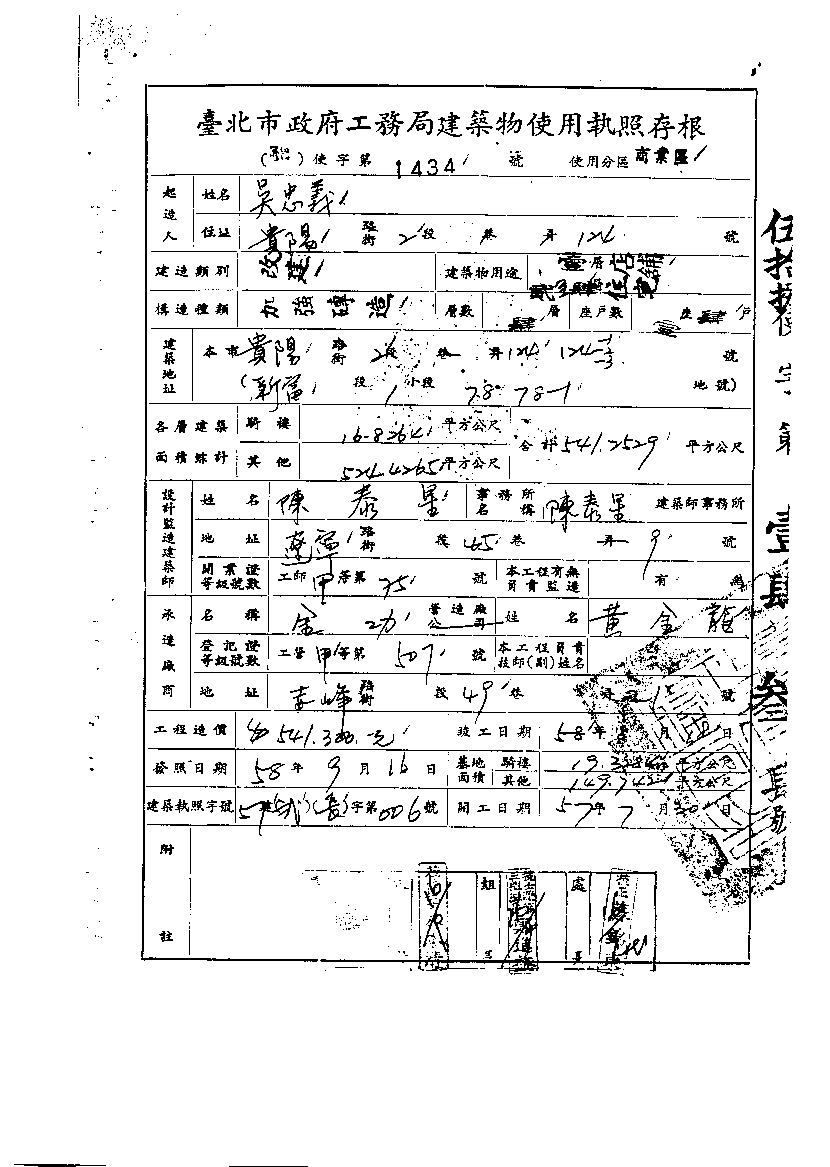 臺北市政府工務局建築物使用執照存根
使字第 1434 號 使用分區 商業區
起造人 姓名 吳忠義
住址 貴陽 路街 2 段 巷 弄 124 號
建造類別 改建 建築物用途 壹層店鋪 住宅
構造種類 加強磚造 層數 肆 層 座戶數 座 肆 戶
建築地址 本市 貴陽 路街 2 段 巷 弄 124 124-1-3 號
(新富 段 1 小段 78 78-1 地號)
各層建築面積總計 騎樓 16.8264 平方公尺 合計 541.2529 平方公尺
其他 524.4265 平方公尺
設計監造建築師 姓名 陳泰星 事務所名稱 陳泰星 建築師事務所
地址 遼寧 路街 段 45 巷 弄 9 號
開業證等級號數 工師 甲 等第 75 號 本工程有無負責監造 有 無
承造廠商 名稱 金功 營造廠公司 姓名 黃金龍
登記證等級號數 工營 甲 等第 507 號 本工程負責技師(副)姓名
地址 赤峰 路街 段 49 巷 弄 號
工程造價 541,300元 竣工日期 58 年 月 日
發照日期 58 年 9 月 16 日 基地面積 騎樓 平方公尺
其他 平方公尺
建築執照字號 字第 006 號 開工日期 57 年 7 月 日
附註
組 處
伍拾捌使字第壹肆叁肆號